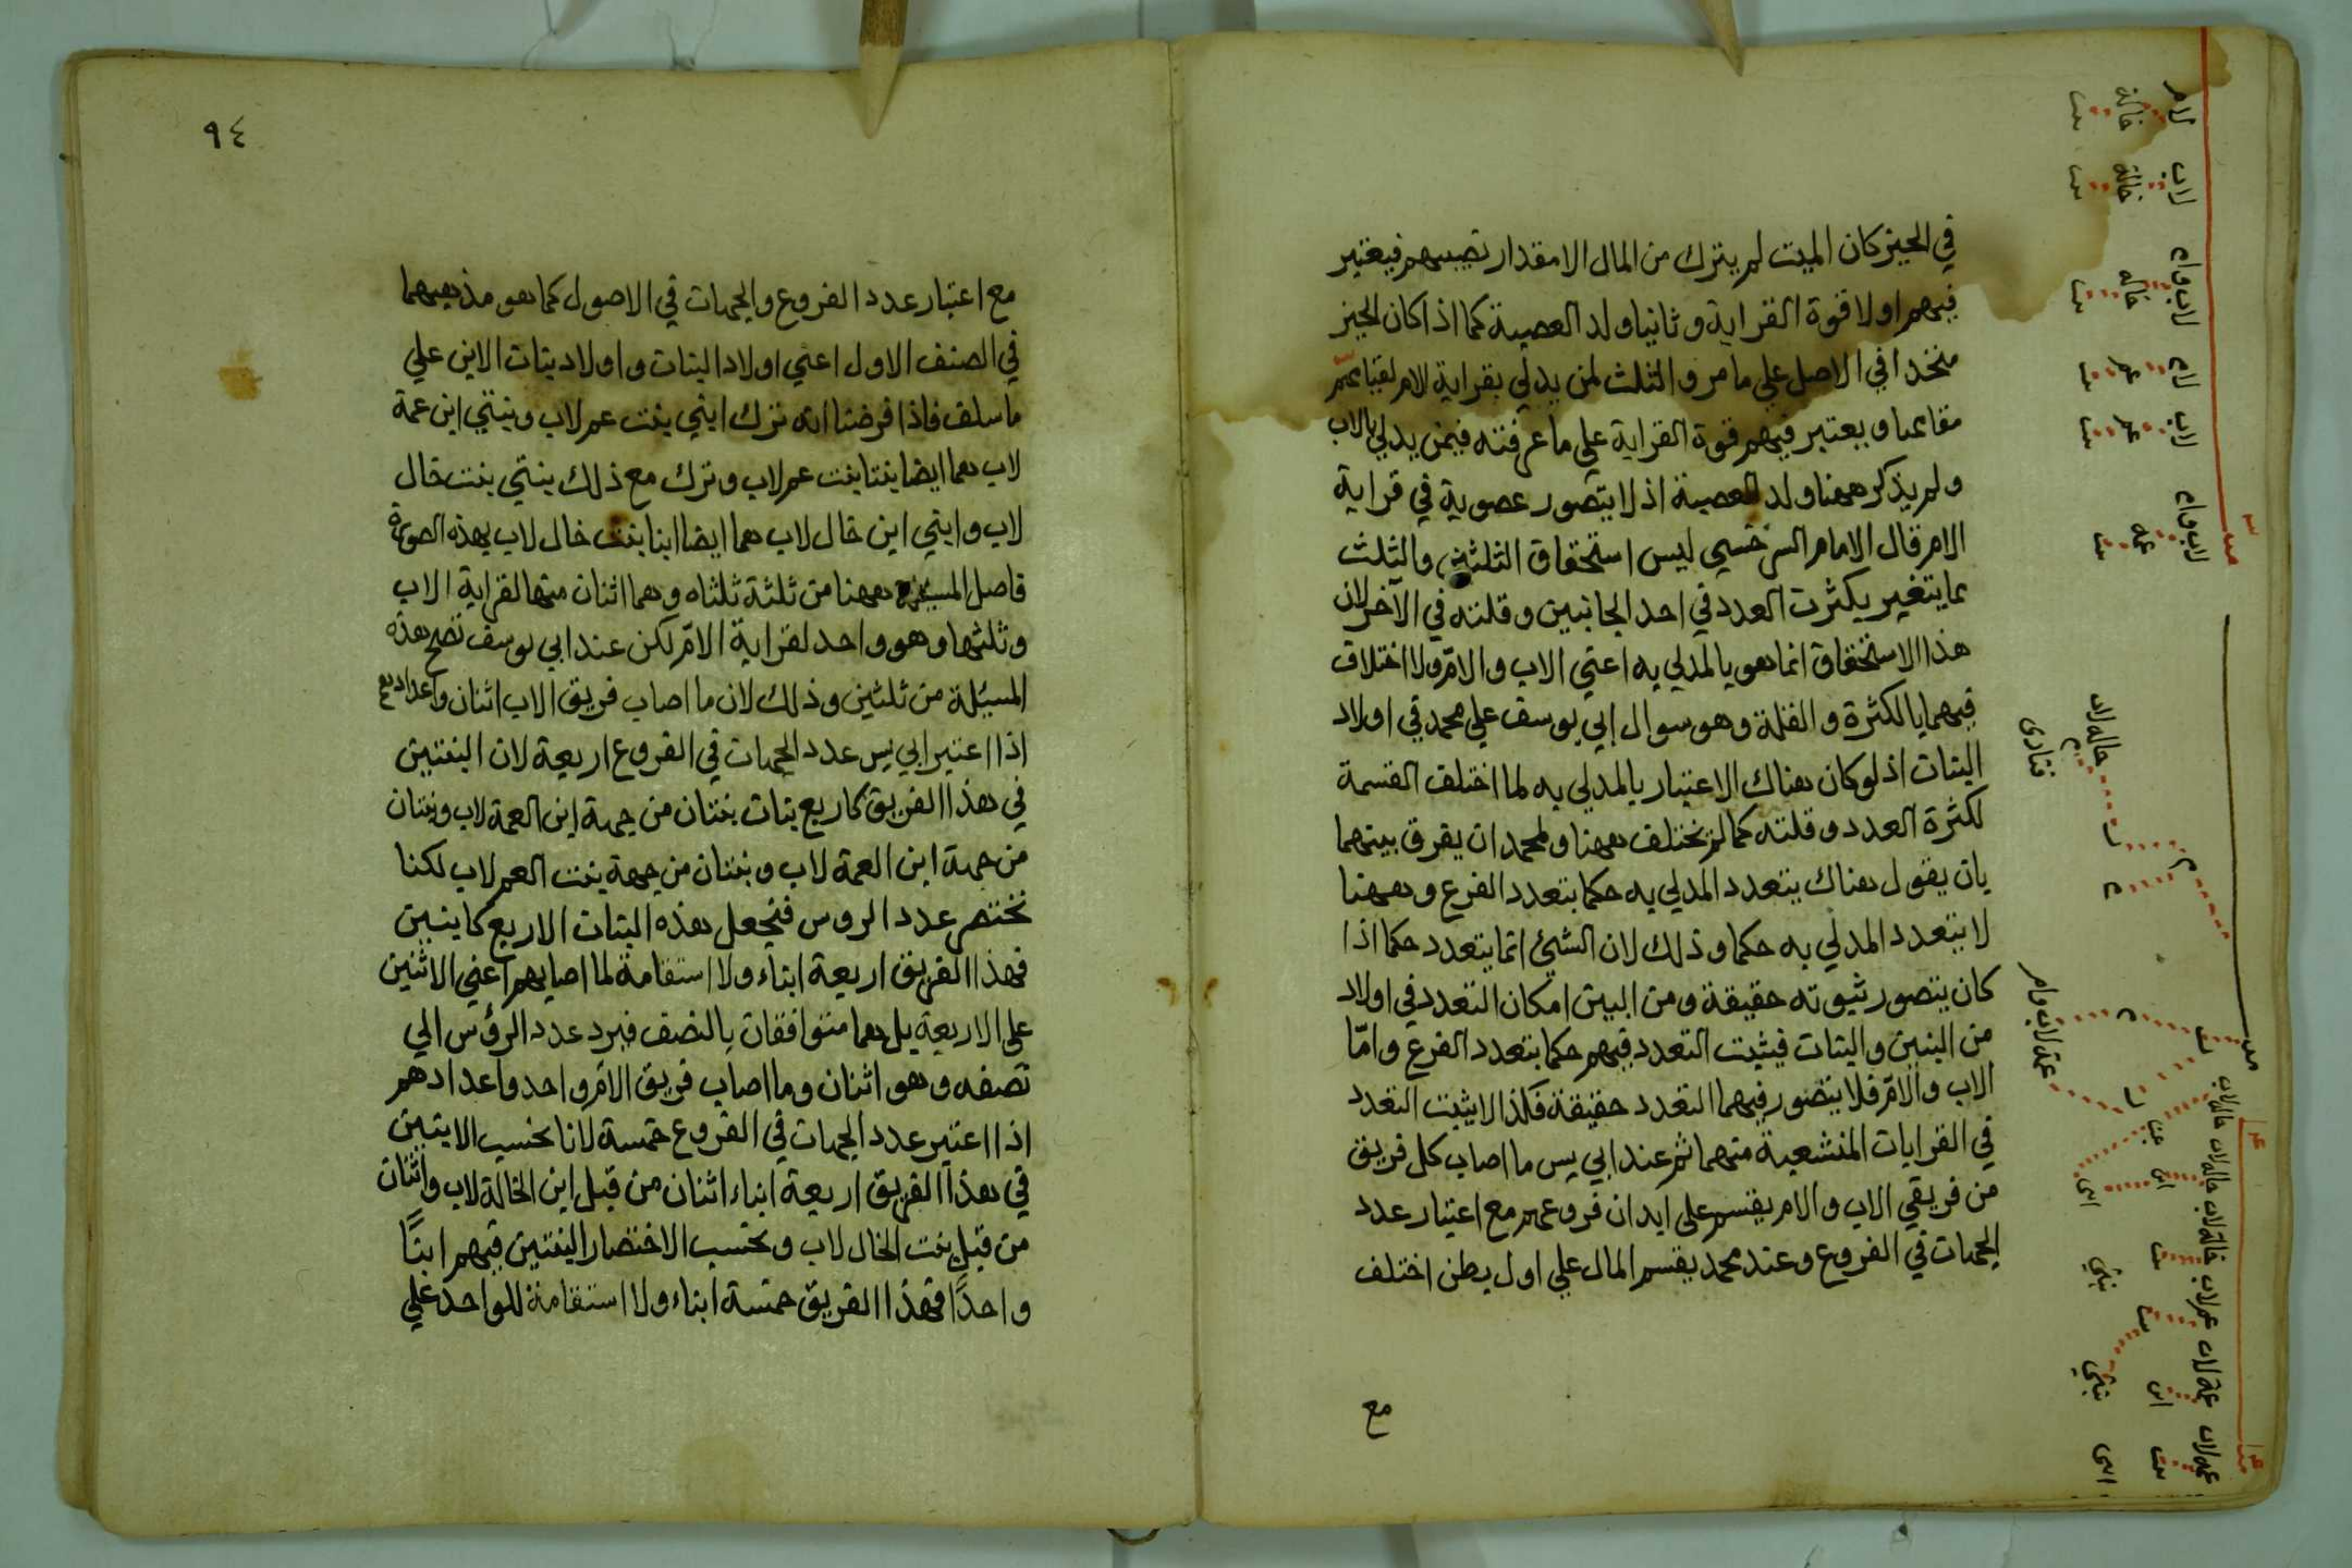 في الحيز كان الميت لم يترك من المال الا مقدار نصيبهم فيعتبر
فيهم اولا قوة القرابة وثانيا ولد العصبة كما اذا كان الحيز
متحدا في الاصل علي ما مر والثلث لمن يدلي بقرابة الام لقيامهم
مقامها ويعتبر فيهم قوة القرابة علي ما عرفته فيمن يدلي بالاب
ولم يذكر ههنا ولد العصبة اذ لا يتصور عصوبة في قرابة
الام قال الامام السرخسي ليس استحقاق الثلثين والثلث
مما يتغير بكثرت العدد في احد الجانبين وقلته في الآخر لان
هذا الاستحقاق انما هو بالمدلي به اعني الاب والامّ ولا اختلاف
فيهما بالكثرة والقلة وهو سوال ابي يوسف علي محمد في اولاد
البنات اذ لو كان هناك الاعتبار بالمدلي به لما اختلف القسمة
لكثرة العدد وقلته كما لم يختلف ههنا ولمحمد ان يفرق بينهما
بان يقول هناك يتعدد المدلي به حكما بتعدد الفرع وههنا
لا يتعدد المدلي به حكما وذلك لان الشئ انما يتعدد حكما اذا
كان يتصور ثبوته حقيقة ومن البين امكان التعدد في اولاد
من البنين والبنات فيثبت التعدد فيهم حكما بتعدد الفرع وامّا
الاب والامّ فلا يتصور فيهما التعدد حقيقة فكذا لا يثبت التعدد
في القرابات المنشعبة منهما ثم عند ابي يس ما اصاب كل فريق
من فريقي الاب والام يقسم علي ابدان فروعهم مع اعتبار عدد
الجهات في الفروع وعند محمد يقسم المال علي اول بطن اختلف
مع
لام
خالة
بنت
لاب
خالة
بنت
لاب وام
خالة
بنت
لام
عم
بنت
لاب
عم
بنت
لاب وام
عمة
بنت
خالة لاب
عمة لاب وام
خالة لاب
ابن
خالة لاب
بنت
بنتي
عم لاب
بنت
عمة لاب
ابن
بنتي
عمة لاب
بنت
ابني
٩٤
مع اعتبار عدد الفروع والجهات في الاصول كما هو مذهبهما
في الصنف الاول اعني اولاد البنات واولاد بنات الابن علي
ما سلف فاذا فرضنا انه ترك ابني بنت عم لاب وبنتي ابن عمة
لاب هما ايضا بنتا بنت عم لاب وترك مع ذلك بنتي بنت خال
لاب وابني ابن خال لاب هما ايضا ابنا بنت خال لاب بهذه الصورة
فاصل المسئلة ههنا من ثلثة ثلثاه وهما اثنان منها لقرابة الاب
وثلثها وهو واحد لقرابة الامّ لكن عند ابي يوسف تصح هذه
المسئلة من ثلثين وذلك لان ما اصاب فريق الاب اثنان واعدادهم
اذا اعتبر ابي يس عدد الجهات في الفروع اربعة لان البنتين
في هذا الفريق كاربع بنات بنتان من جهة ابن العمة لاب وبنتان
من جهة ابن العمة لاب وبنتان من جهة بنت العم لاب لكنا
نختصر عدد الروس فنجعل هذه البنات الاربع كابنين
فهذا الفريق اربعة ابناء ولا استقامة لما اصابهم اعني الاثنين
علي الاربعة بل هما متوافقان بالنصف فيرد عدد الرؤس الي
نصفه وهو اثنان وما اصاب فريق الامّ واحد واعدادهم
اذا اعتبر عدد الجهات في الفروع خمسة لانا نحسب الابنين
في هذا الفريق اربعة ابناء اثنان من قبل ابن الخالة لاب واثنان
من قبل بنت الخال لاب ونحسب الاختصار البنتين فيهم ابنًا
واحدًا فهذا الفريق خمسة ابناء ولا استقامة للواحد علي